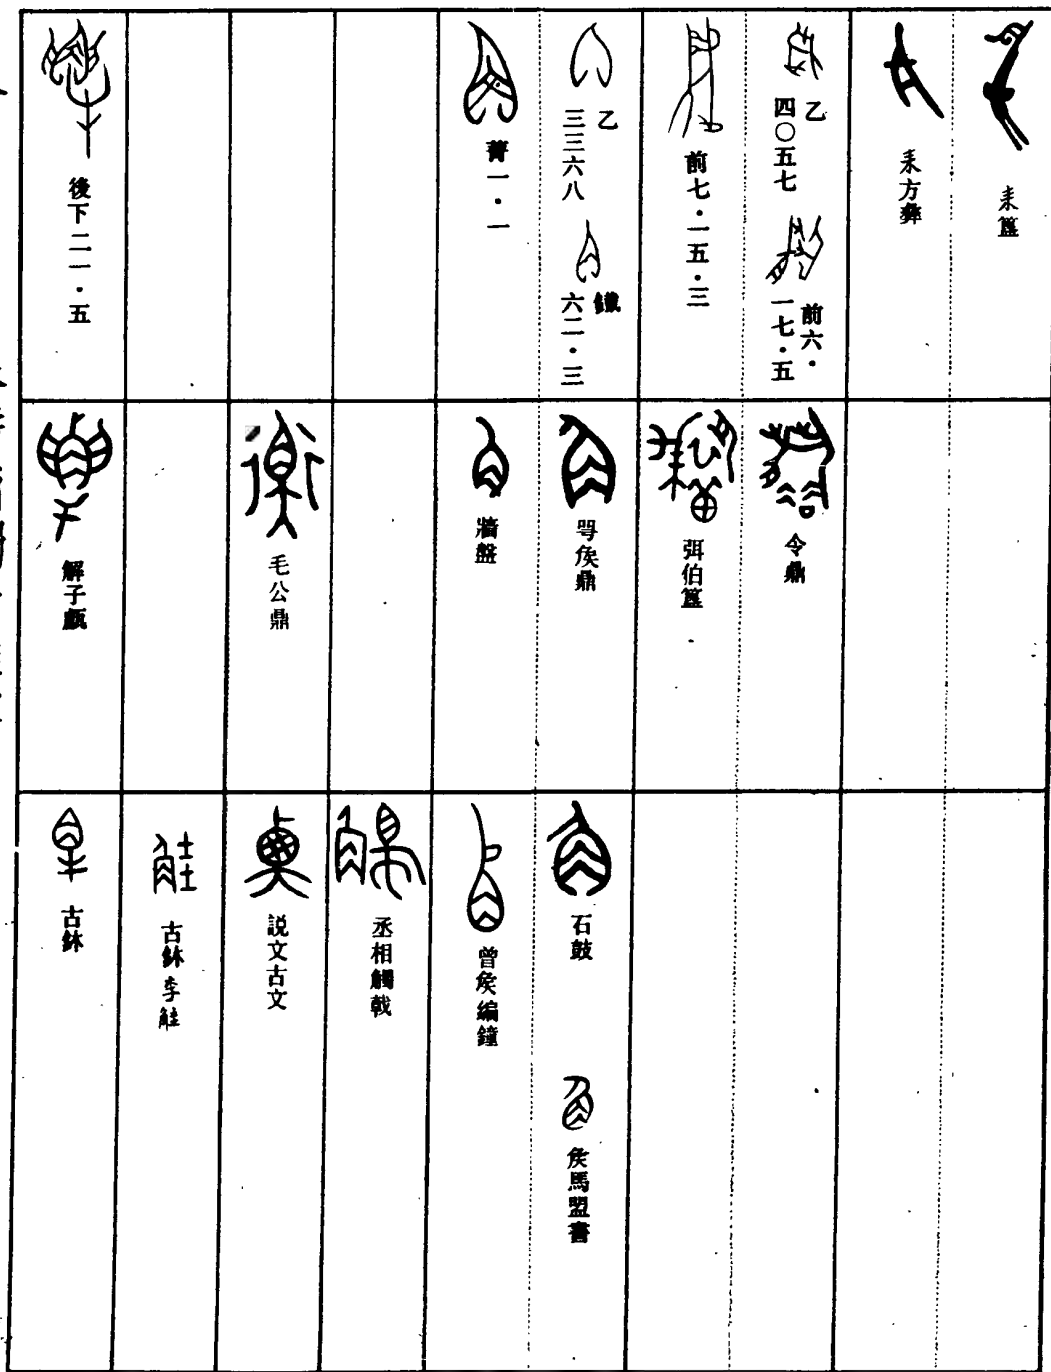 耒簋
耒方彝
乙
四〇五七
前六・
一七・五
前七・一五・三
乙
三三六八
鐵
六二・三
菁一・一
後下二一・五
令鼎
弭伯簋
咢矦鼎
牆盤
毛公鼎
解子甗
石鼓
矦馬盟書
曾矦編鐘
丞相觸戟
説文古文
古鉥李觟
古鉥